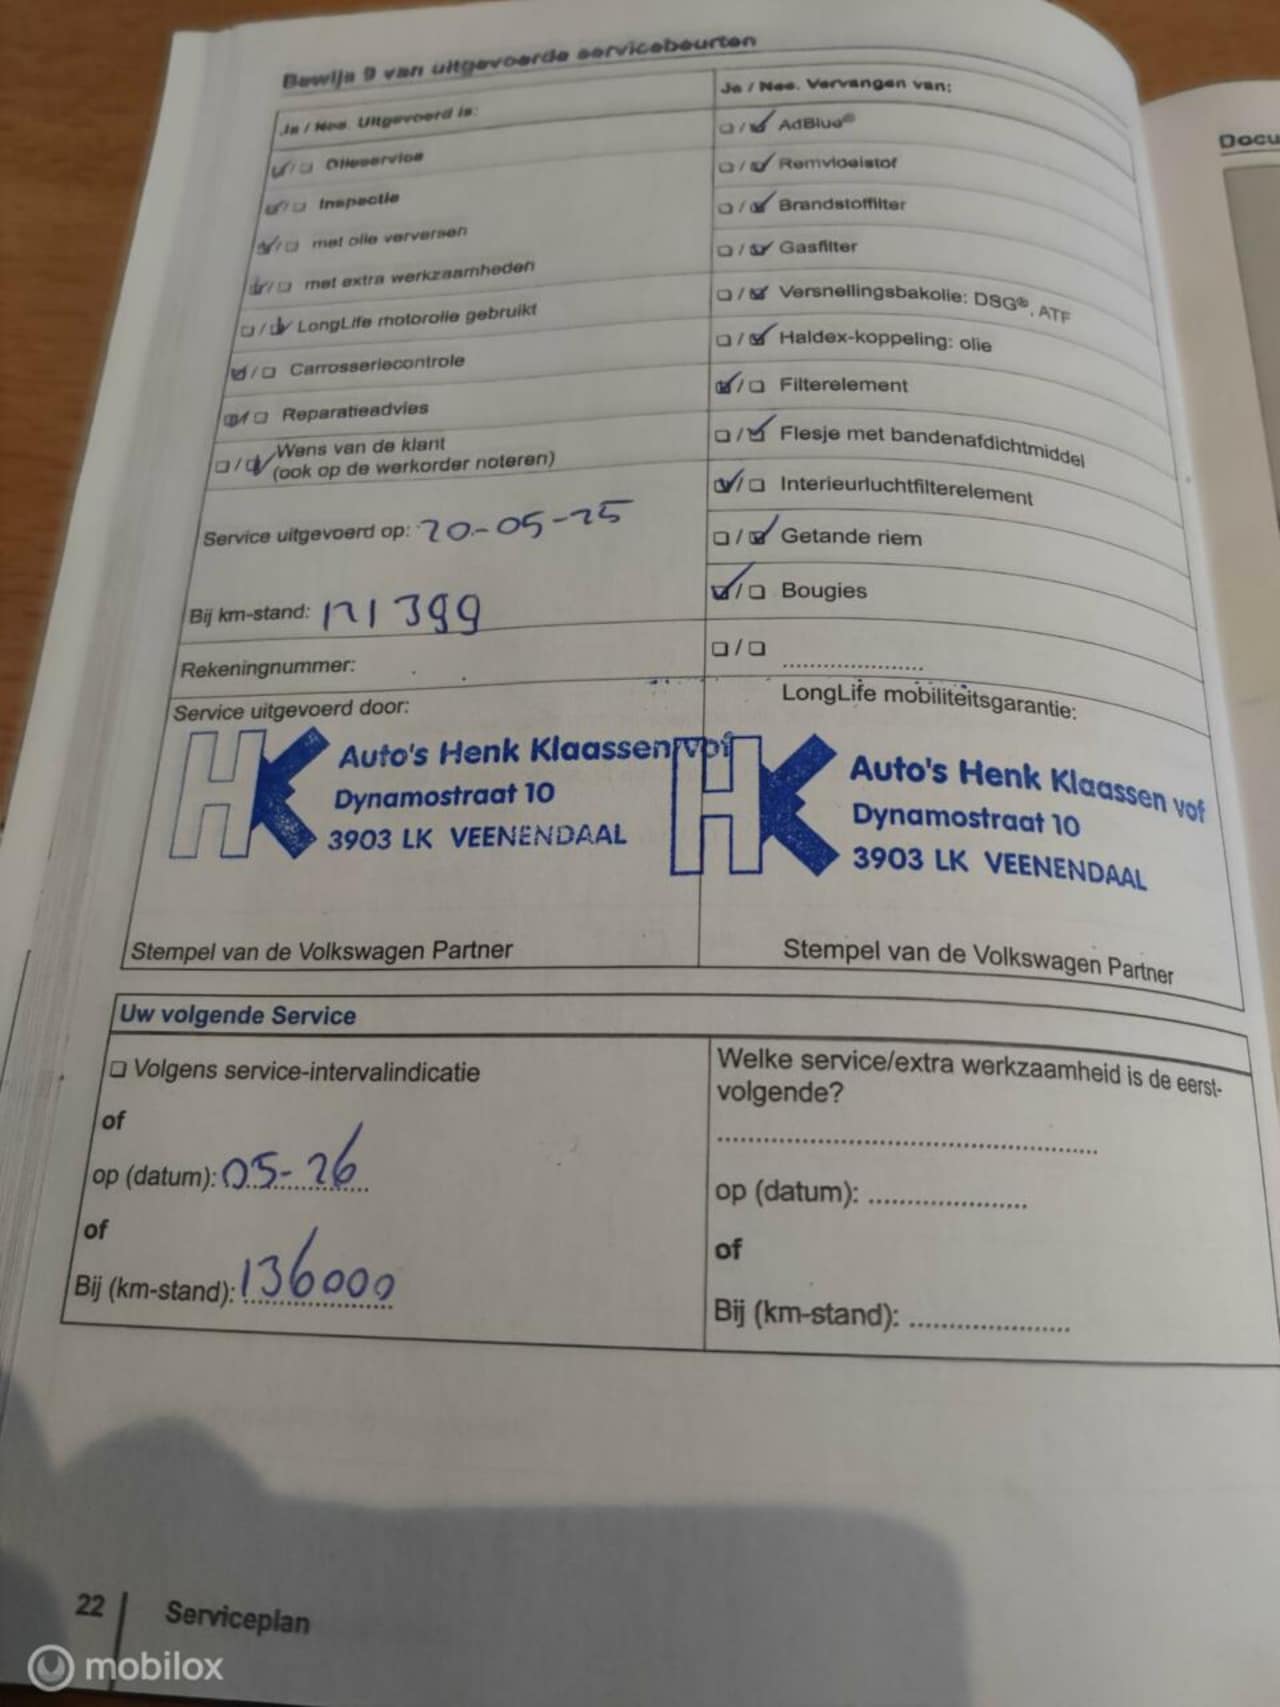 Bewijs 9 van uitgevoerde servicebeurten
Ja / Nee. Uitgevoerd is:
Olieservice
Inspectie
met olie verversen
met extra werkzaamheden
LongLife motorolie gebruikt
Carrosseriecontrole
Reparatieadvies
Wens van de klant
(ook op de werkorder noteren)
Service uitgevoerd op: 20-05-25
Bij km-stand: 121399
Rekeningnummer:
Service uitgevoerd door:
HK
Auto's Henk Klaassen vof
Dynamostraat 10
3903 LK VEENENDAAL
Stempel van de Volkswagen Partner
Ja / Nee. Vervangen van:
AdBlue®
Remvloeistof
Brandstoffilter
Gasfilter
Versnellingsbakolie: DSG®, ATF
Haldex-koppeling: olie
Filterelement
Flesje met bandenafdichtmiddel
Interieurluchtfilterelement
Getande riem
Bougies
LongLife mobiliteitsgarantie:
HK
Auto's Henk Klaassen vof
Dynamostraat 10
3903 LK VEENENDAAL
Stempel van de Volkswagen Partner
Uw volgende Service
Volgens service-intervalindicatie
of
op (datum): 05-26
of
Bij (km-stand): 136000
Welke service/extra werkzaamheid is de eerst-
volgende?
op (datum):
of
Bij (km-stand):
Docu
22 Serviceplan
mobilox